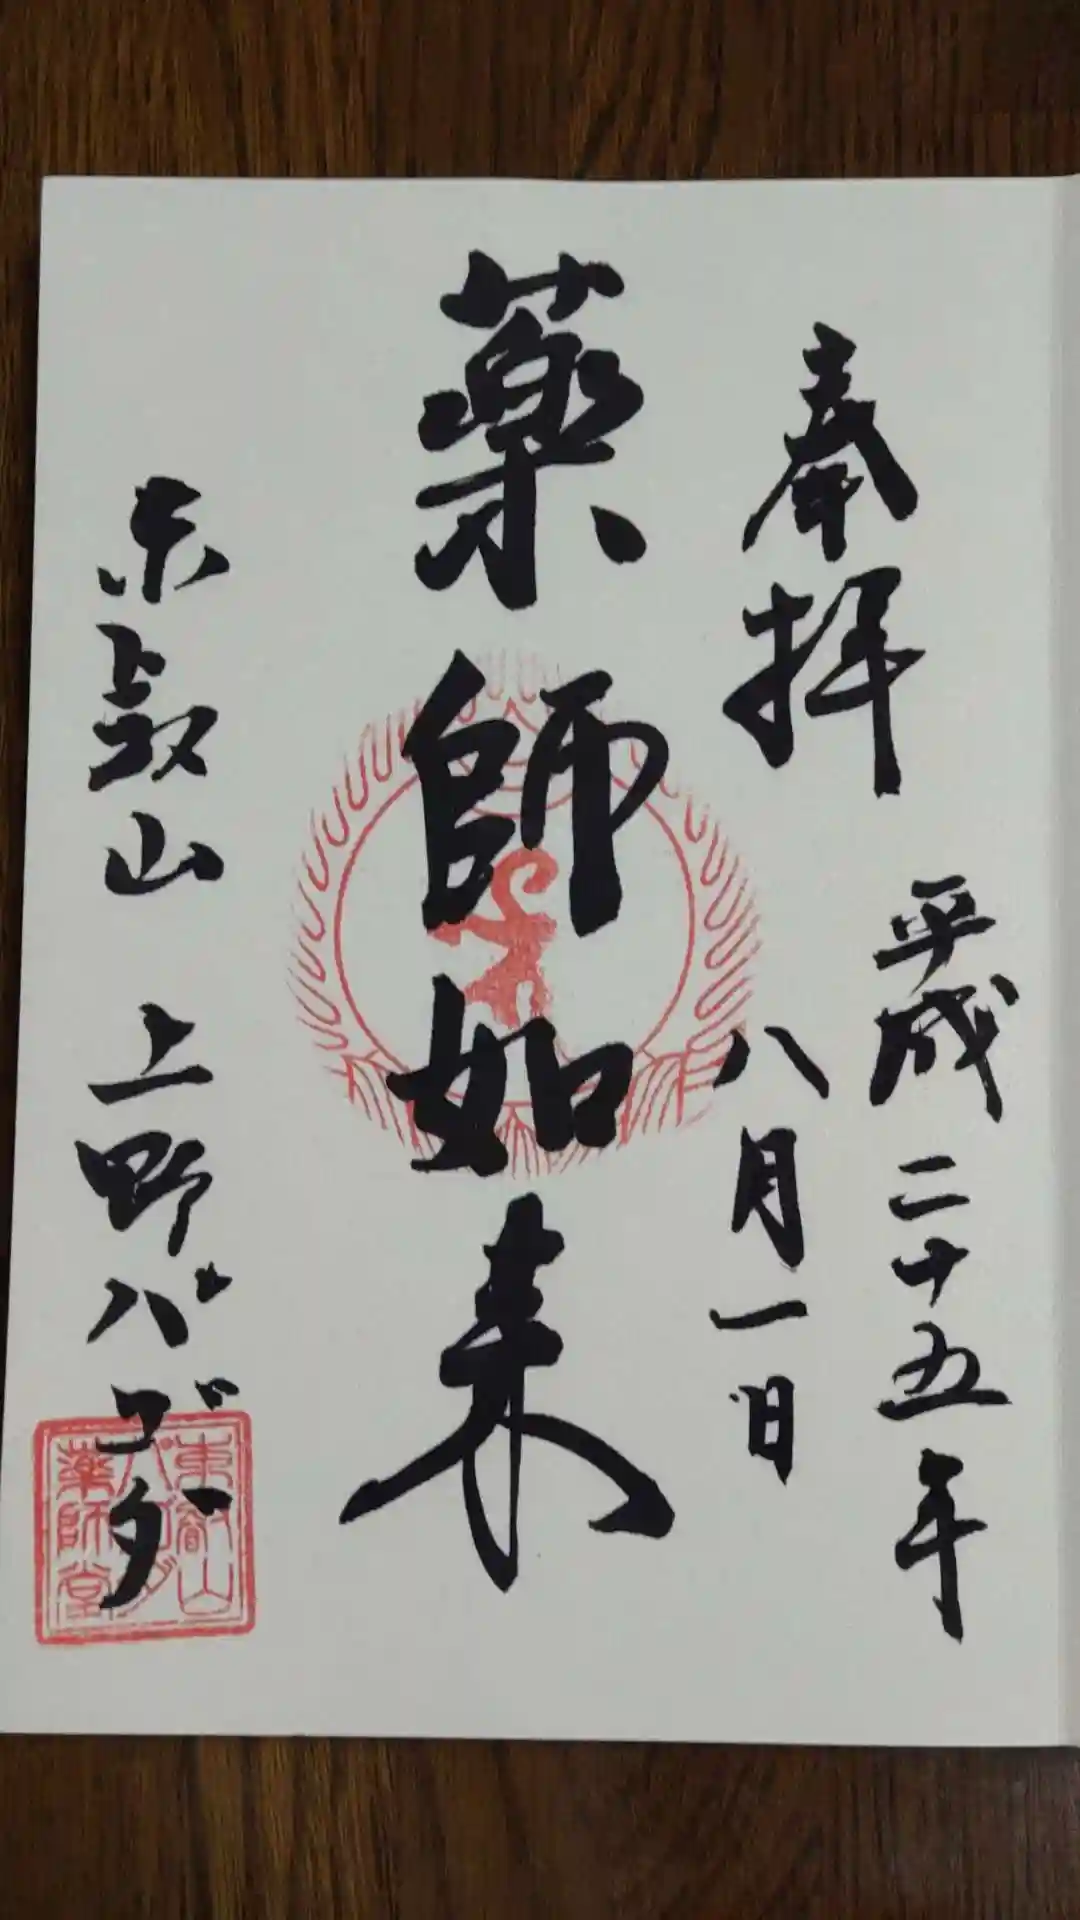 奉拝
平成二十五年
八月一日
薬師如来
東叡山 上野パゴダ
東叡山
パゴダ
薬師堂